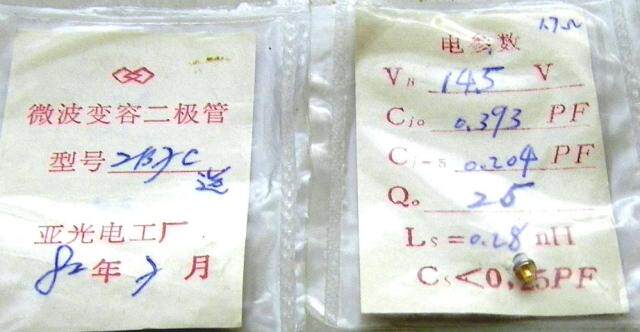 微波变容二极管
型号 2B7C
亚光电工厂
82年7月
电参数
V_B 14.5 V
C_jo 0.393 PF
C_j-5 0.204 PF
Q_o 25
L_s=0.28 nH